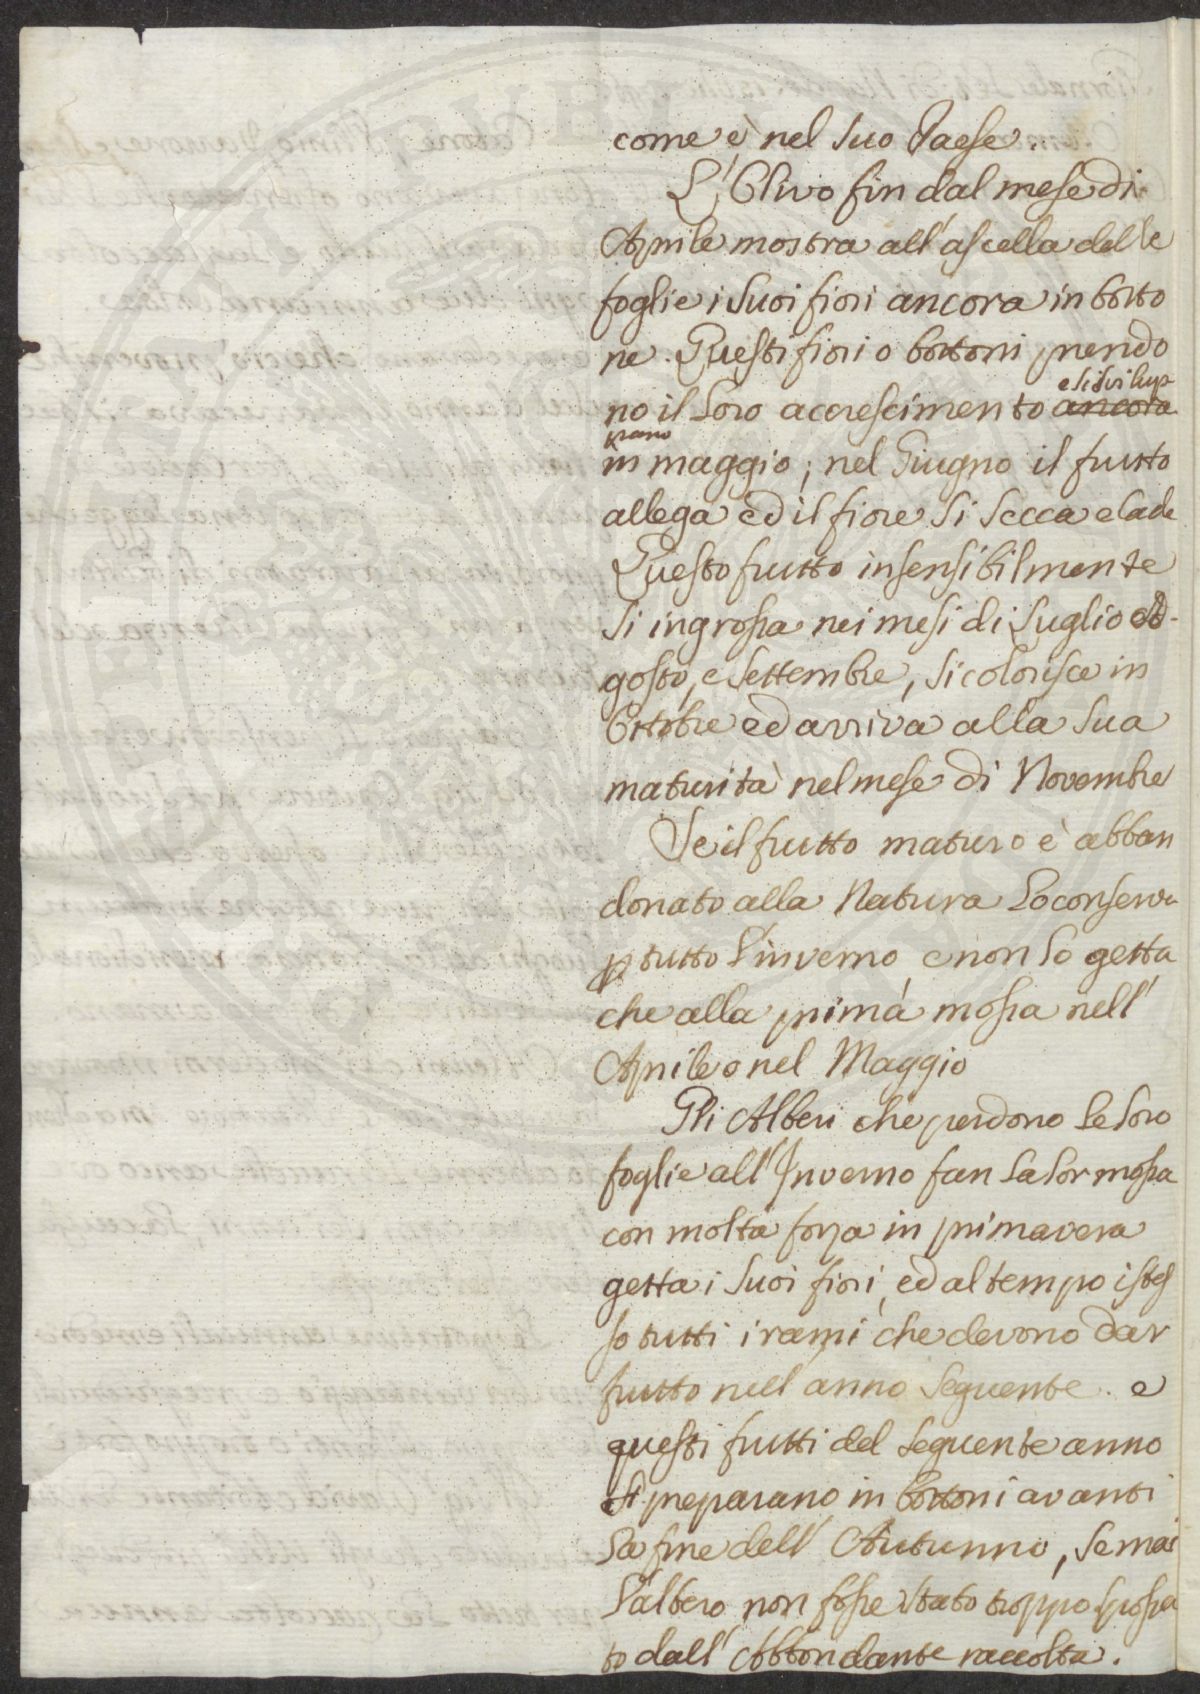 come è nel suo Paese.
L'Olivo fin dal mese di
Aprile mostra all'ascella delle
foglie i suoi fiori ancora in botto
ne. Questi fiori o bottoni prendo
e si svilup
no il loro accrescimento ancora
pano
in maggio; nel Giugno il frutto
allega ed il fiore si secca e cade
Questo frutto insensibilmente
si ingrossa nei mesi di Luglio A-
gosto, e Settembre, si colorisce in
Ottobre ed arriva alla sua
maturità nel mese di Novembre
Se il frutto maturo è abban
donato alla Natura lo conserva
p tutto l'inverno e non lo getta
che alla prima mossa nell'
Aprile o nel Maggio
Gli Alberi che perdono le loro
foglie all'Inverno fan la lor mossa
con molta forza in primavera
getta i suoi fiori, ed al tempo istes
so tutti i rami che devono dar
frutto nell anno seguente. e
questi frutti del seguente anno
si preparano in bottoni avanti
la fine dell' Autunno, se mai
l'albero non fosse stato troppo spossa
to dall' Abbondante raccolta.